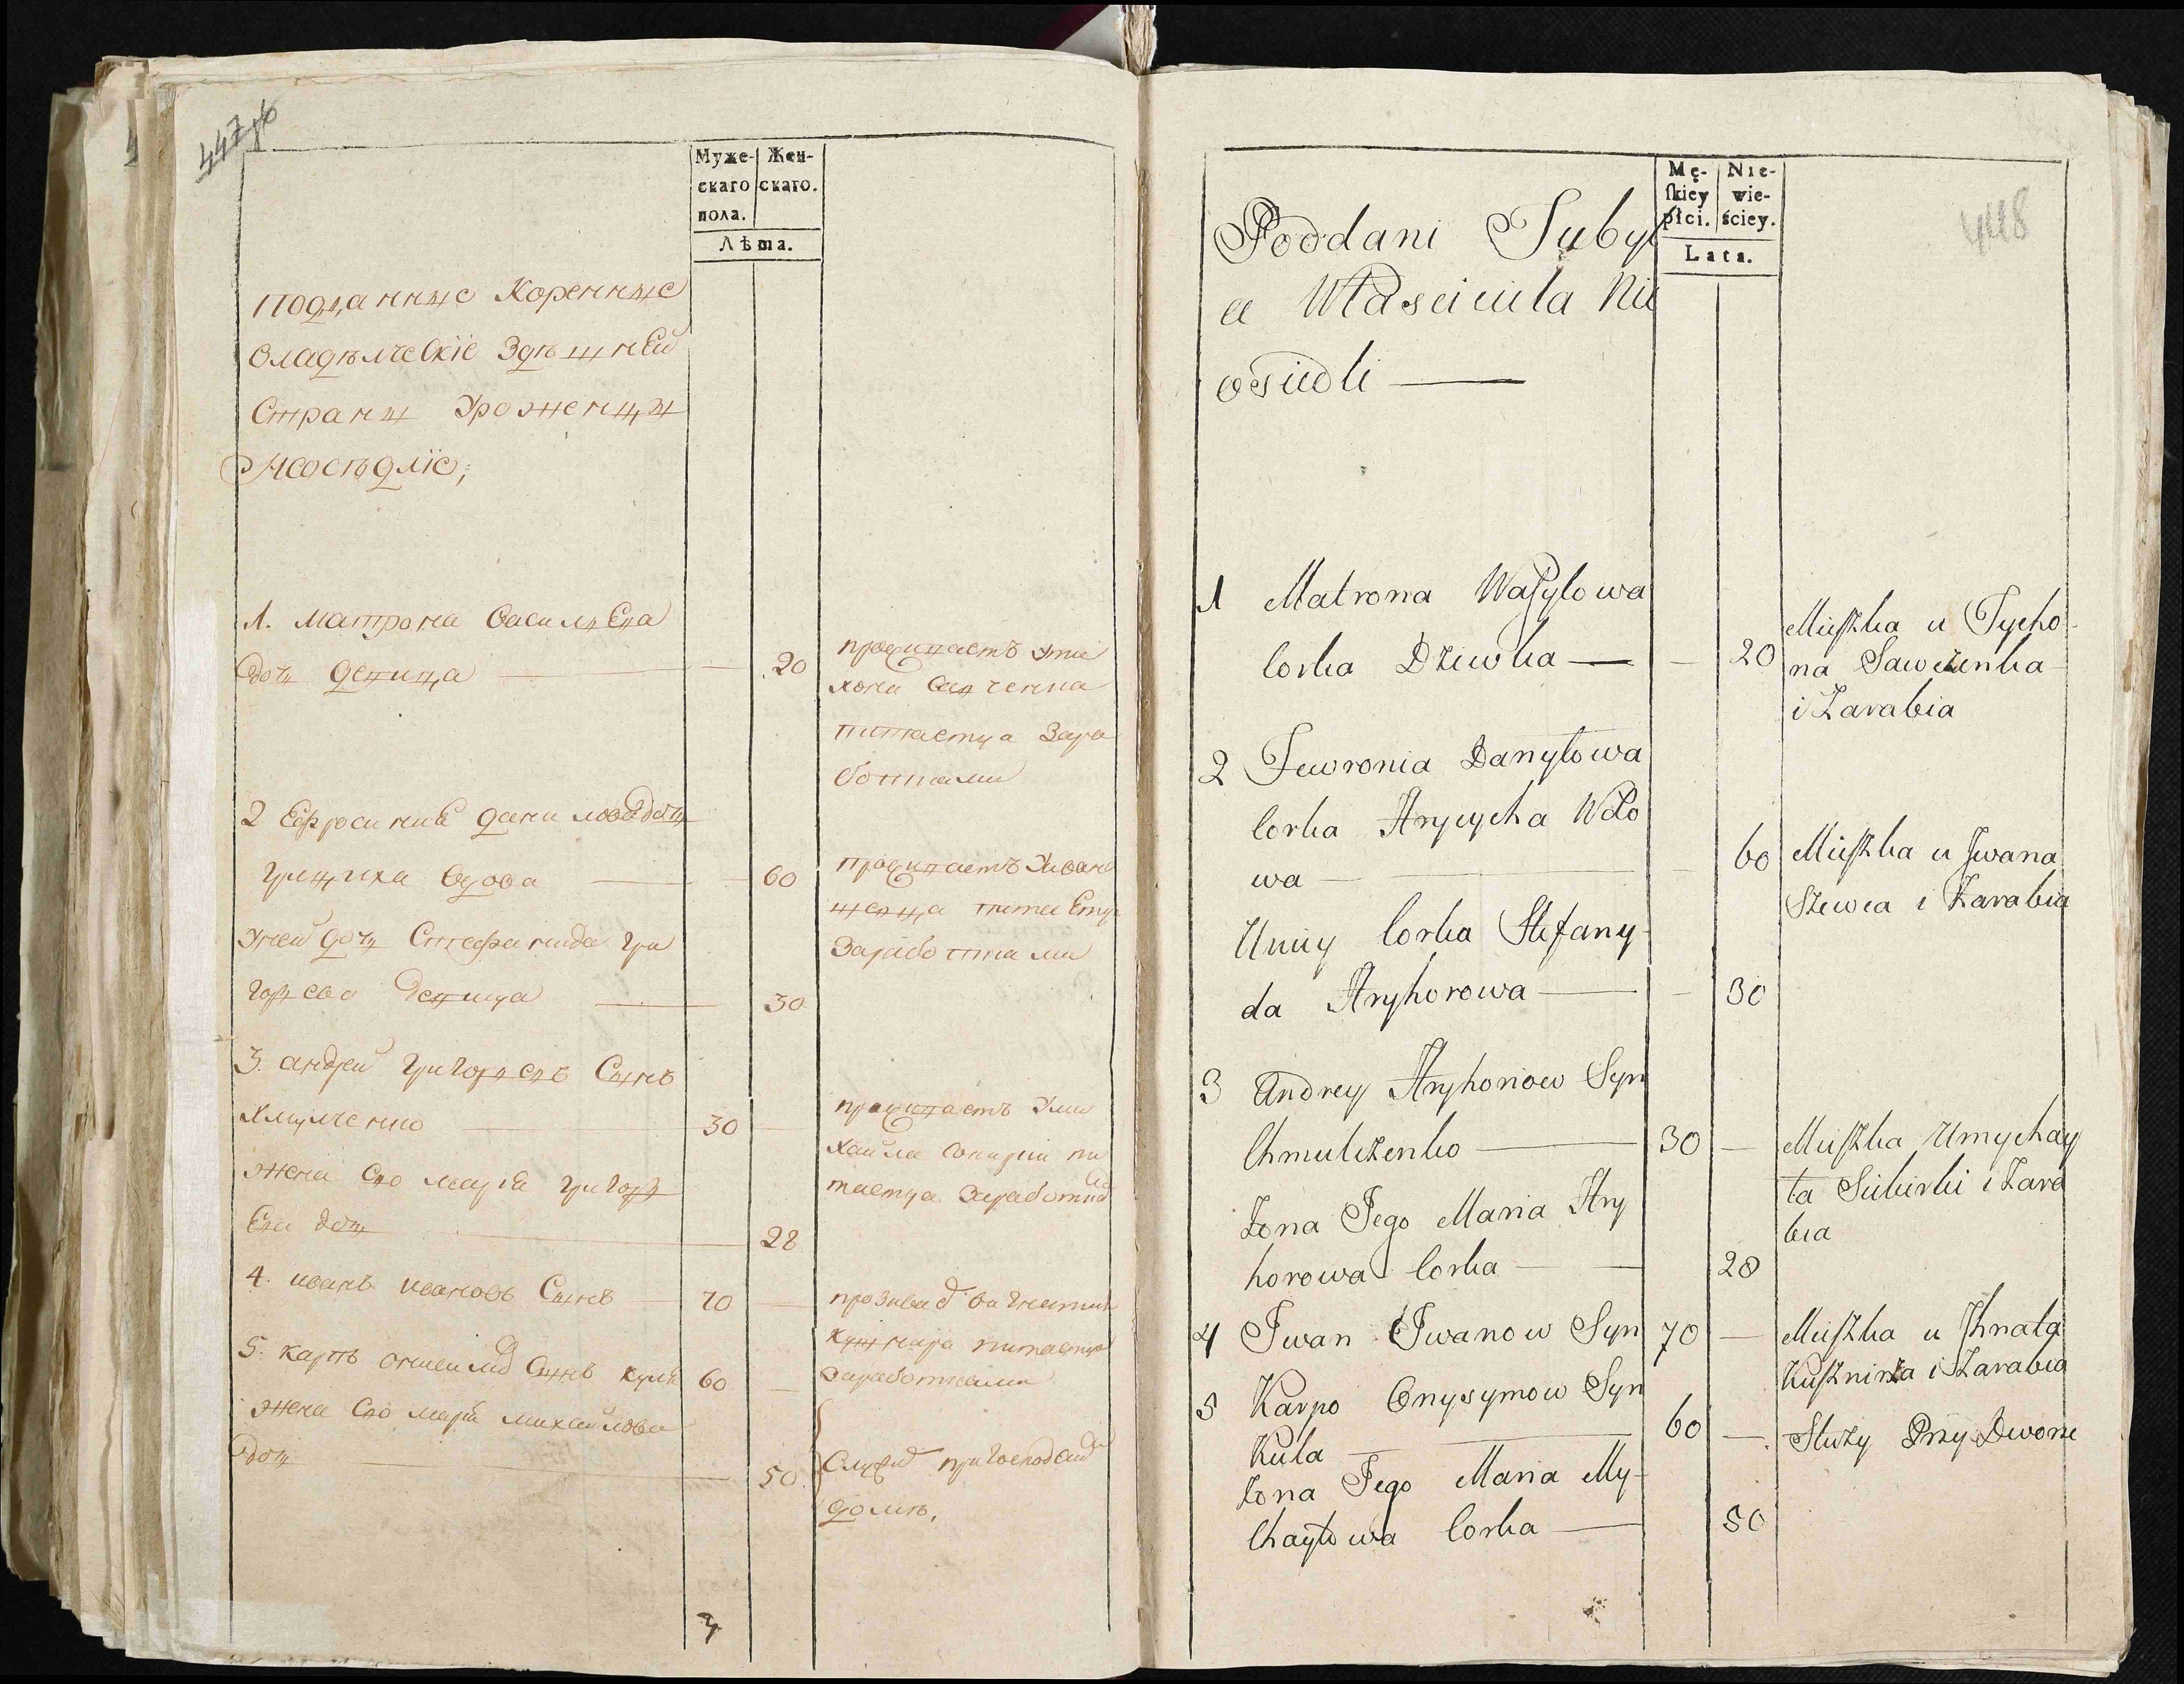 447 об
Муже-
скаго
пола.
Жен-
скаго.
Лѣта.
Подданные Коренные
владѣлческіе здѣшней
Страны Уроженцы
Неосѣдліе;
1. Матрона васильева
дочь девица — 20
проживаетъ у ти
хона савченка
питается Зара
ботками
2 Ефросиния данилова дочь
грицыха вдова — 60
проживаетъ у ивана
шевца питается
Заработками
у ней дочь Стефанида гри
горьева девица — 30
3. андрей григорьевъ Сынъ
хмулченко — 30 —
проживаетъ у ми
хайла
питается Заработка
жена его мария григорь
ева дочь — 28
4. иванъ ивановъ Сынъ — 70 —
проживает в игната
кушнира питается
Заработками
5. карпъ онисимов Сынъ кула 60 —
жена его мария михайлова
дочь — 50
Служит при господском
доме.
448
Mę-
skiey
płci.
Nie-
wie-
ściey.
Lata.
Poddani Tubyl
a Własciciela Nie
osiedli —
1 Matrona Wasylowa
Corka Dziewka — — 20
Mieszka u Tycho-
na Sawczenka
i Zarabia
2 Fewronia Danyłowa
Corka Hrycycha Wdo
wa — — 60
Mieszka u Iwana
Szewca i Zarabia
U niey Corka Stefany-
da Hryhorowa — — 30
3 Andrey Hryhoriow Syn
Chmulczenko — 30 —
Mieszka U mychay
ła Sikirki i Zara
bia
Zona Jego Maria Hry
horowa Corka — — 28
4 Iwan Iwanow Syn 70 —
Mieszka u Ihnata
Kusznirza i Zarabia
5 Karpo Onysymow Syn
Kula — 60 —
Służy Przy Dworze
Zona Jego Maria My-
chayłowa Corka — 50